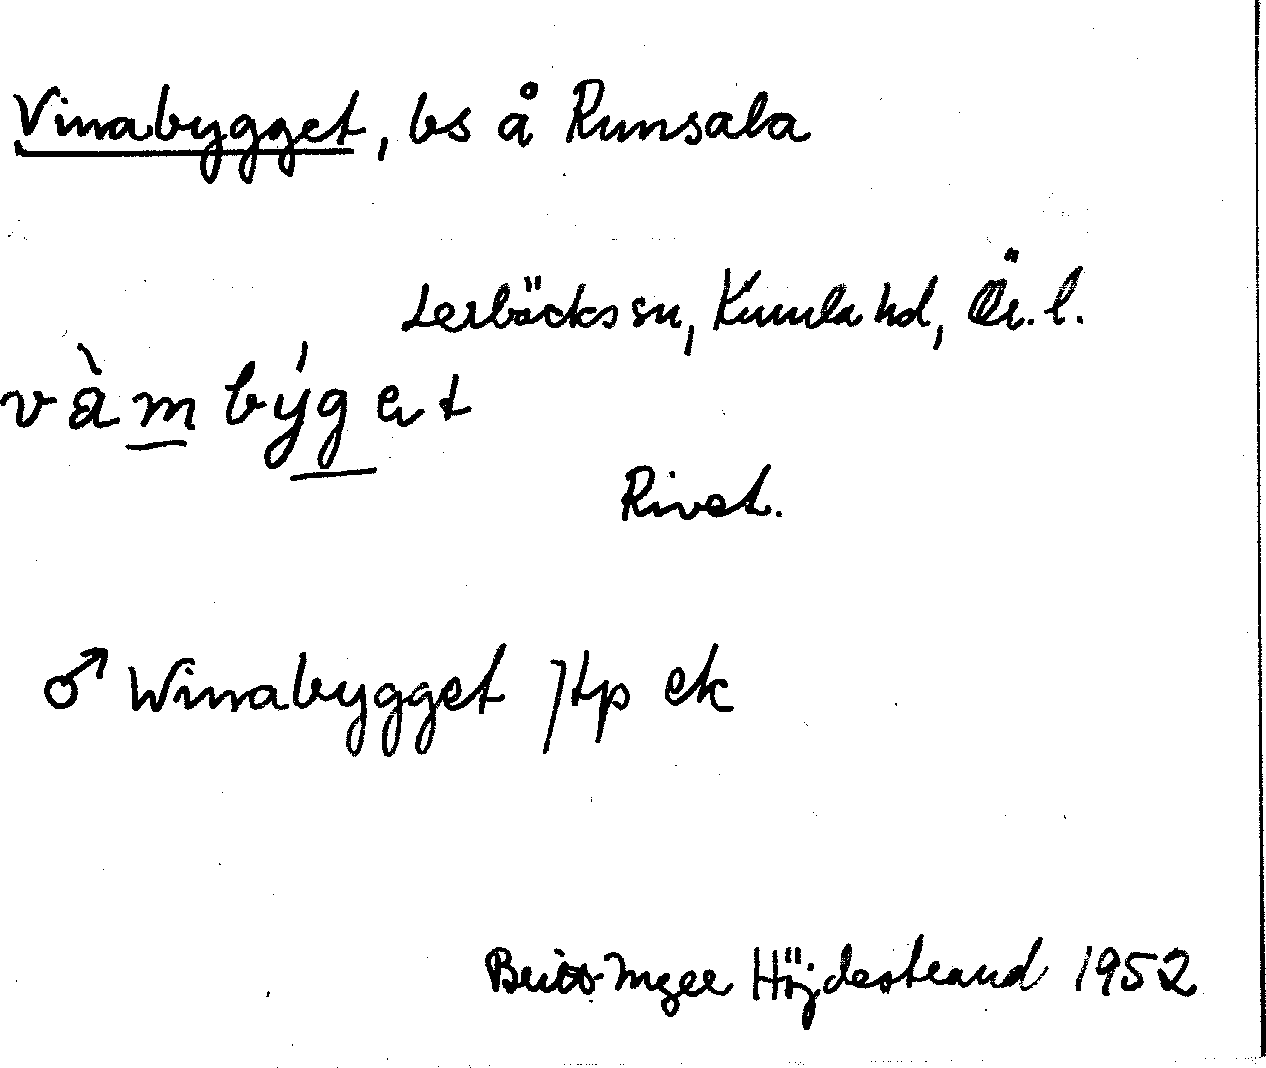 Vinabygget, bs å Runsala
Lerbäcks sn, Kumla hd, Ör. l.
vàmbýgət
Rivet.
♂ Winabygget /tp ek
Britt-Inger Höjdestrand 1952